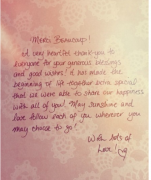 Merci Beaucoup!
A very heartfelt thank-you to
everyone for your generous blessings
and good wishes! It has made the
beginning of life together being special
that we were able to share our happiness
with all of you. May sunshine and
love follow each of you wherever you
may choose to go!
With lots of
Love!